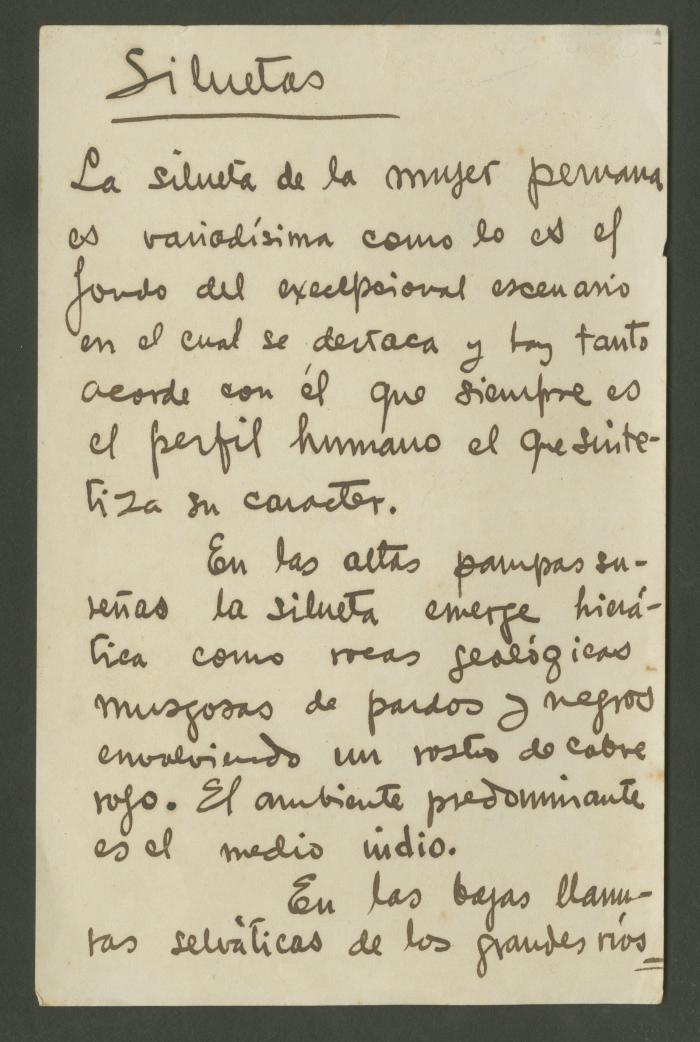 Siluetas
La silueta de la mujer peruana
es variadísima como lo es el
fondo del excelpcional escenario
en el cual se destaca y hay tanto
acorde con él que siempre es
el perfil humano el que sinte-
tiza su caracter.
En las altas pampas su-
reñas la silueta emerge hierá-
tica como rocas geológicas
musgosas de pardos y negros
envolviendo un rostro de cobre
rojo. El ambiente predominante
es el medio indio.
En las bajas llanu-
ras selváticas de los grandes ríos